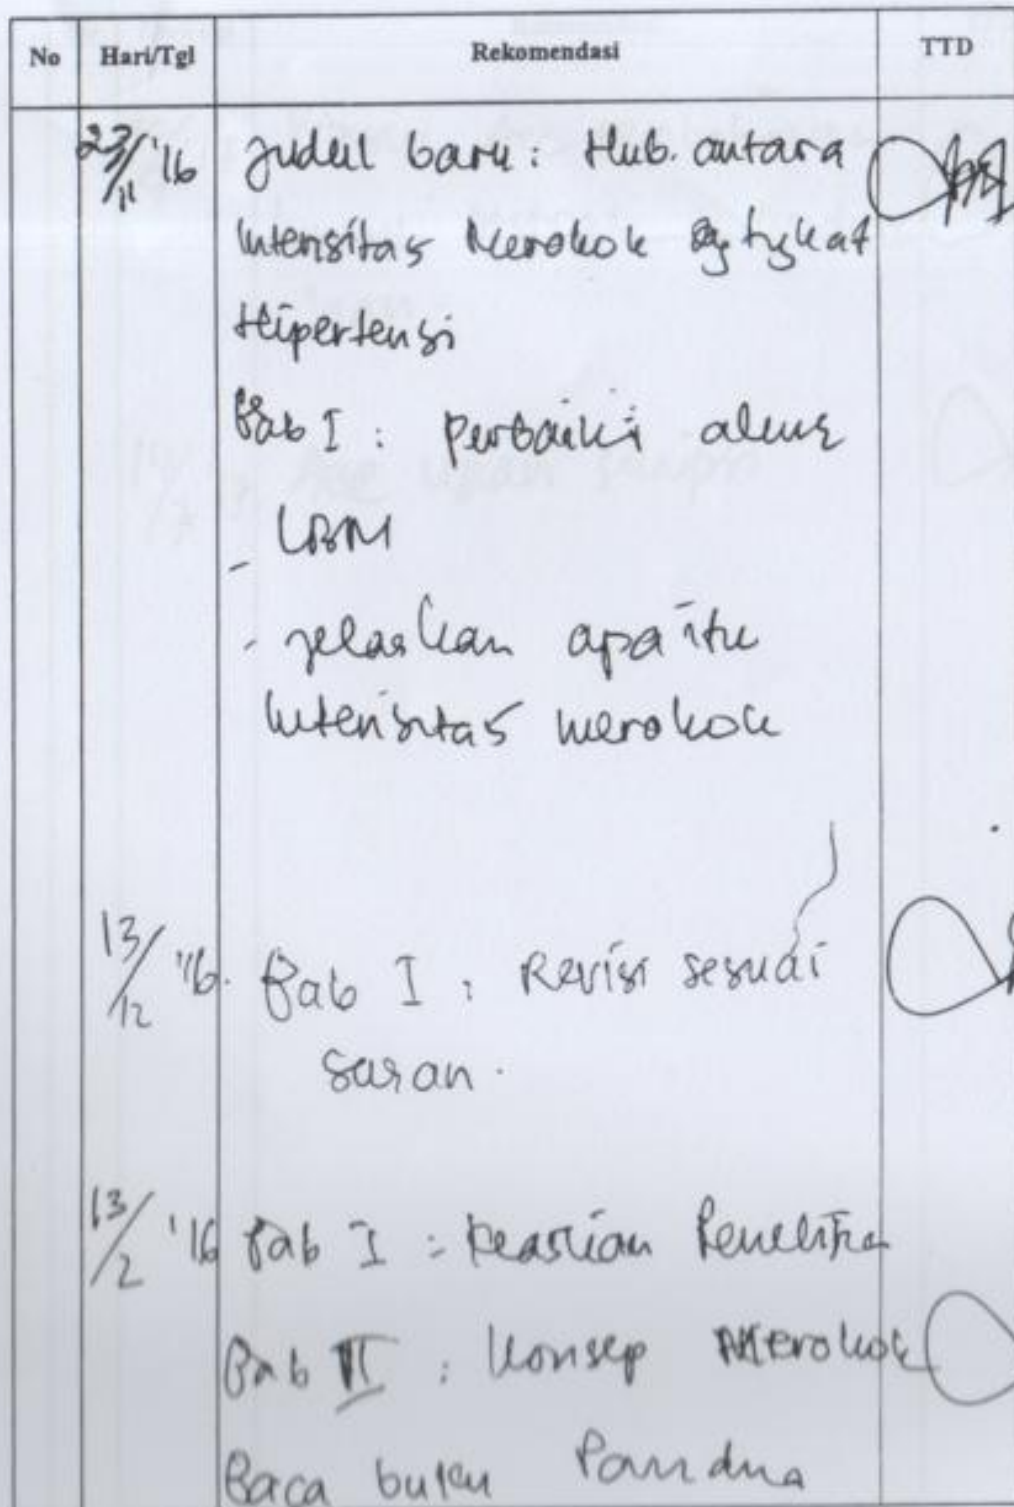 No Hari/Tgl Rekomendasi TTD
23/11 '16 Judul baru : Hub. antara
Intensitas Merokok dg tingkat
Hipertensi
Bab I : perbaiki alur
- LBM
- jelaskan apa itu
Intensitas merokok
13/12 '16. Bab I : Revisi sesuai
saran.
13/2 '16 Bab I : Keaslian Penelitia
Bab II : Konsep Merokok
Baca buku Pandua